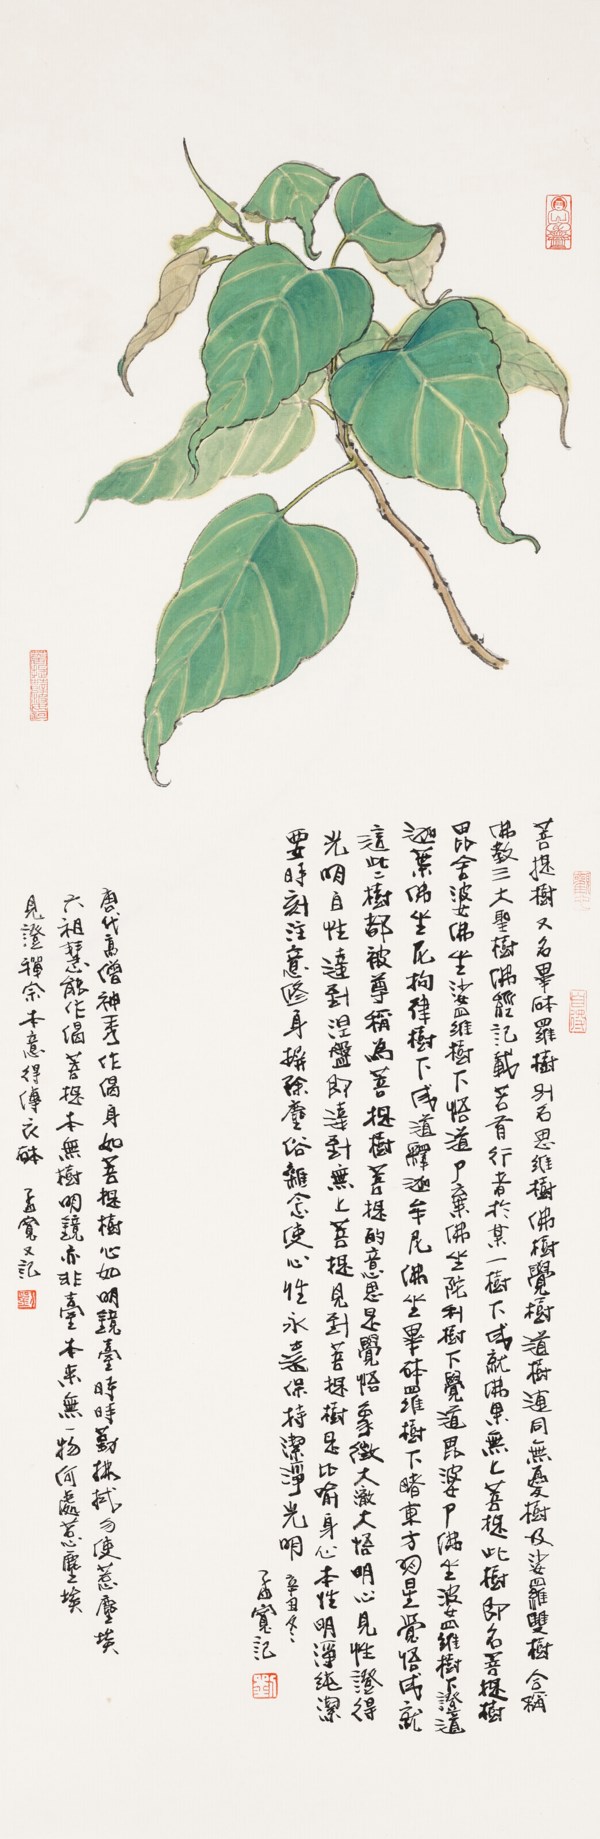 菩提樹又名畢缽羅樹別名思維樹佛樹覺樹道樹連同無憂樹及娑羅雙樹合稱
佛教三大聖樹佛經記載若有行者於某一樹下成就佛果無上菩提此樹即名菩提樹
毘舍婆佛坐娑羅樹下悟道尸棄佛坐陀利樹下覺道毘婆尸佛坐波婆羅樹下證道
迦葉佛坐尼拘律樹下成道釋迦牟尼佛坐畢缽羅樹下睹東方明星覺悟成就
這些樹都被尊稱為菩提樹菩提的意思是覺悟象徵大澈大悟明心見性證得
光明自性達到涅盤即達到無上菩提見到菩提樹是比喻身心本性明淨純潔
要時刻注意修身摒除塵俗雜念使心性永遠保持潔淨光明
辛丑冬
孟寬記
唐代高僧神秀作偈身如菩提樹心如明鏡臺時時勤拂拭勿使惹塵埃
六祖慧能作偈菩提本無樹明鏡亦非臺本來無一物何處惹塵埃
見證禪宗本意得傳衣缽
孟寬又記